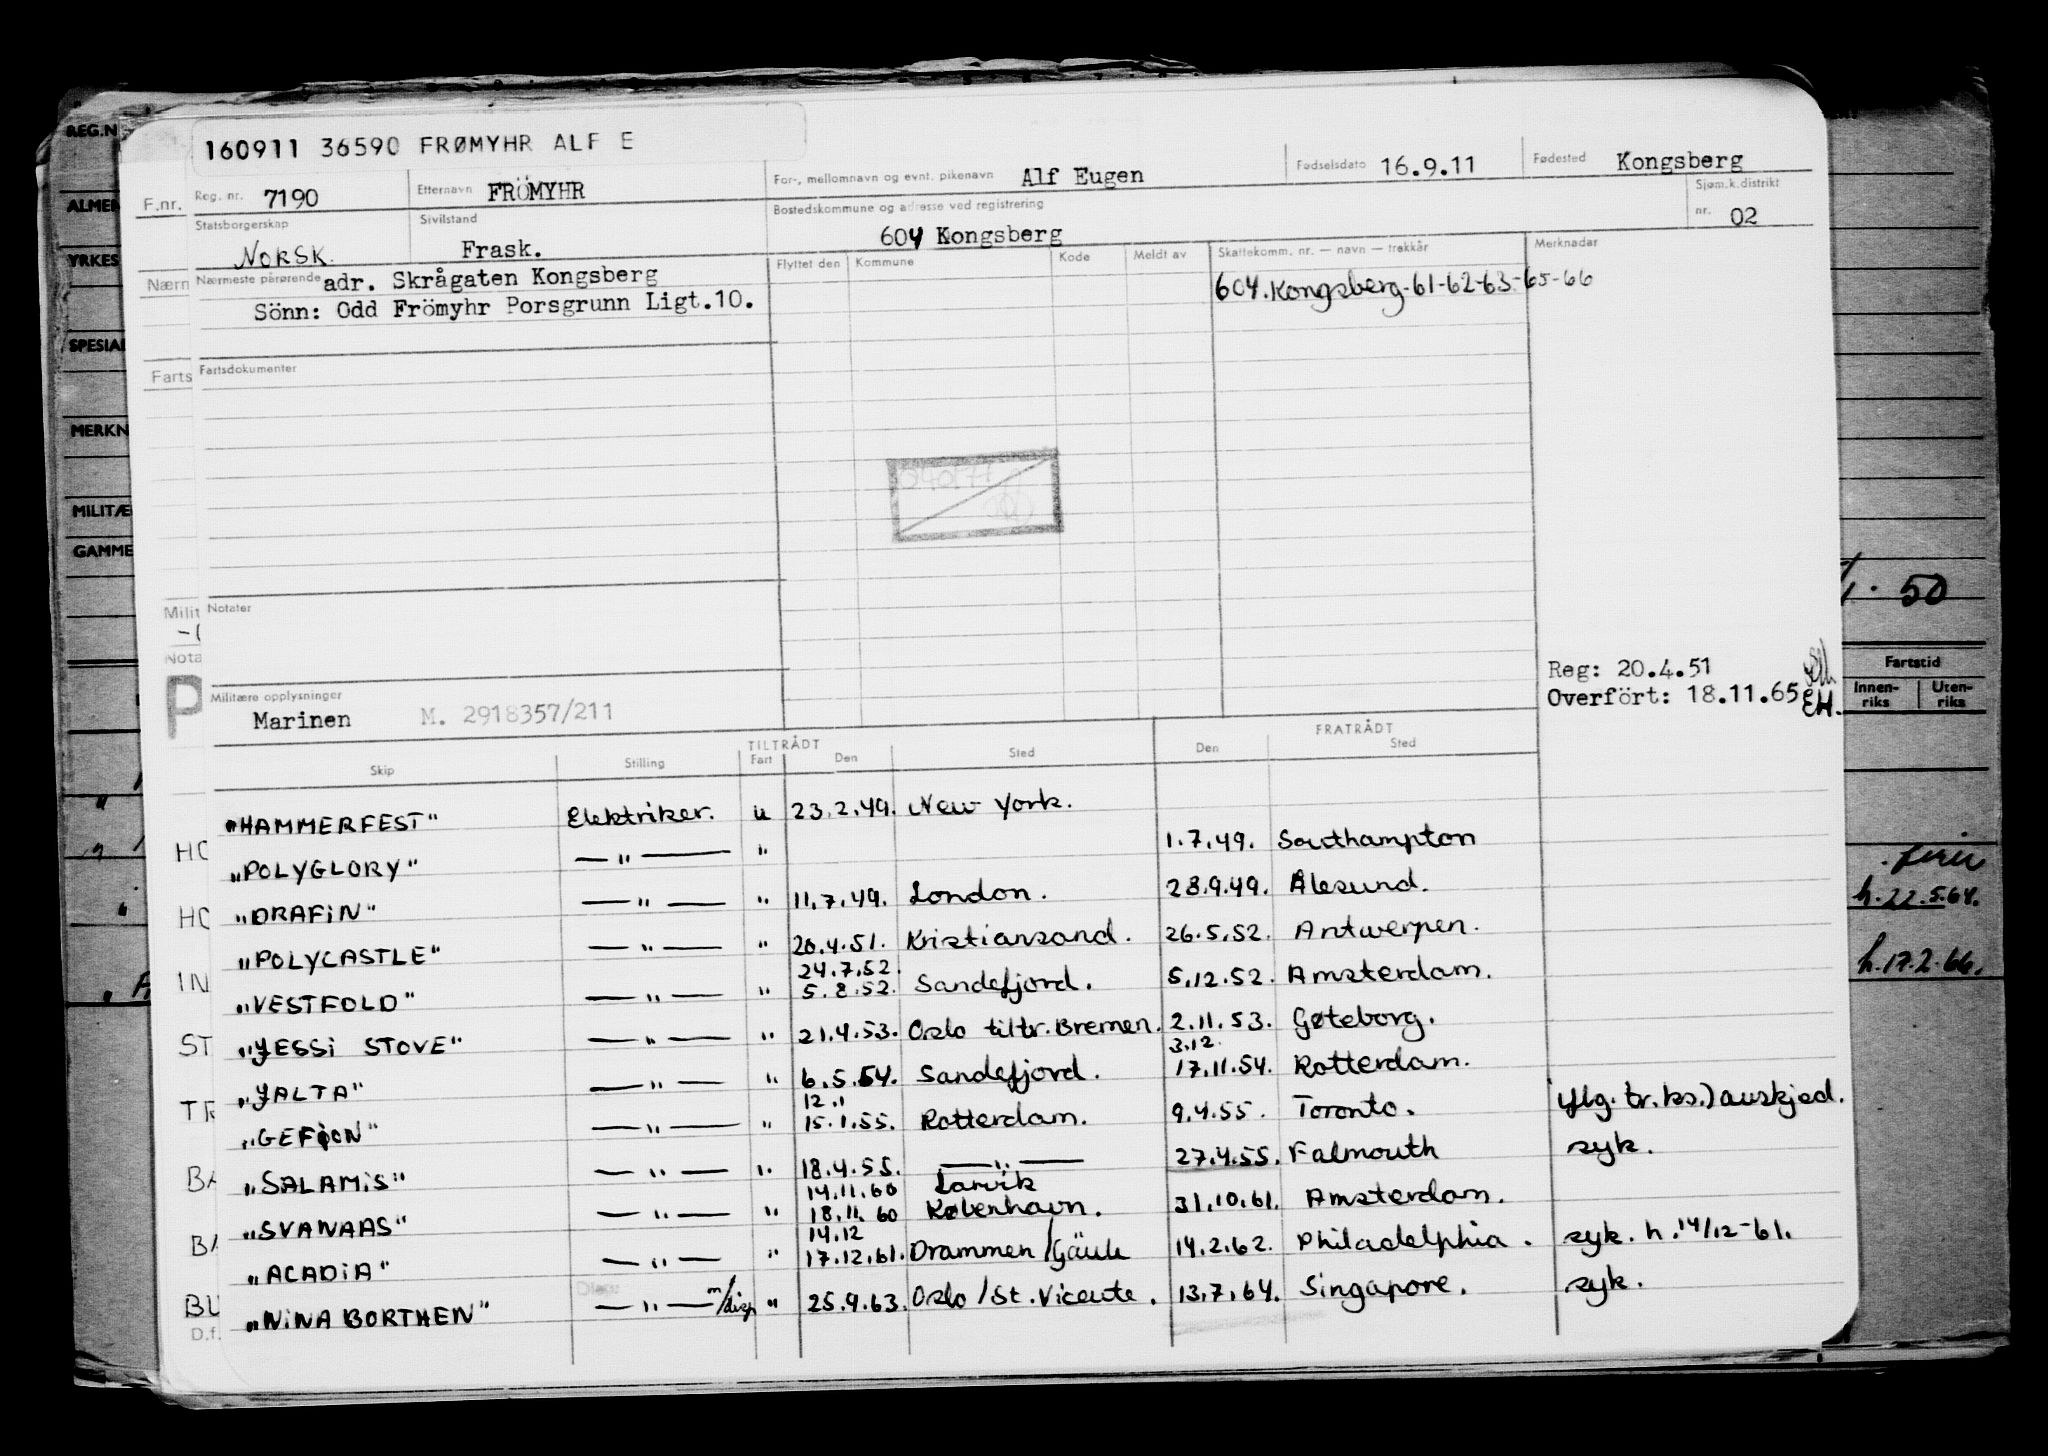 160911 36590 FRØMYHR ALF E
Reg. nr. 7190 Etternavn FRÖMYHR For-, mellomnavn og evnt. pikenavn Alf Eugen Fødselsdato 16.9.11 Fødested Kongsberg
Statsborgerskap NORSK. Sivilstand Frask. Bostedskommune og adresse ved registrering 604 Kongsberg Sjøm.k.distrikt nr. 02
Nærmeste pårørende adr. Skrågaten Kongsberg
Sönn: Odd Frömyhr Porsgrunn Ligt.10.
Flyttet den Kommune Kode Meldt av Skattekomm. nr. — navn — trekkår Merknader
604. Kongsberg-61-62-63-65-66
Fartsdokumenter
Notater
Militære opplysninger
Marinen M. 2918357/211
Reg: 20.4.51
Overfört: 18.11.65 EH.
TILTRÅDT FRATRÅDT
Skip Stilling Fart Den Sted Den Sted
"HAMMERFEST" Elektriker. u 23.2.49. New York.
"POLYGLORY" — " — " 1.7.49. Southampton
"DRAFIN" — " — " 11.7.49. London. 28.9.49. Ålesund.
"POLYCASTLE" — " — " 20.4.51. Kristiansand. 26.5.52. Antwerpen.
24.7.52.
"VESTFOLD" — " — " 5.8.52. Sandefjord. 5.12.52. Amsterdam.
"JESSI STOVE" — " — " 21.4.53. Oslo tiltr. Bremen. 2.11.53. Gøteborg.
3.12.
"JALTA" — " — " 6.5.54. Sandefjord. 17.11.54. Rotterdam.
12.1
"GEFION" — " — " 15.1.55. Rotterdam. 9.4.55. Toronto. avskjed.
"SALAMIS" — " — " 18.4.55. — " — 27.4.55. Falmouth syk.
14.11.60 Larvik
"SVANAAS" — " — " 18.11.60 København. 31.10.61. Amsterdam.
14.12
"ACADIA" — " — " 17.12.61. Drammen/Gäule 14.2.62. Philadelphia. syk. h. 14/12-61.
"NINA BORTHEN" — " — m/disp " 25.9.63. Oslo/St. Vicente. 13.7.64. Singapore. syk.
REG.N
F.nr.
ALMEN
YRKES
Nærn
SPESIAL
Farts
MERKN
MILITÆ
GAMME
Milit
Nota
P
HO
HO
IN
ST
TR
BA
BA
BU
D.f.
50
Fartstid
Innen-riks Uten-riks
h.22.5.64.
h.17.2.66.